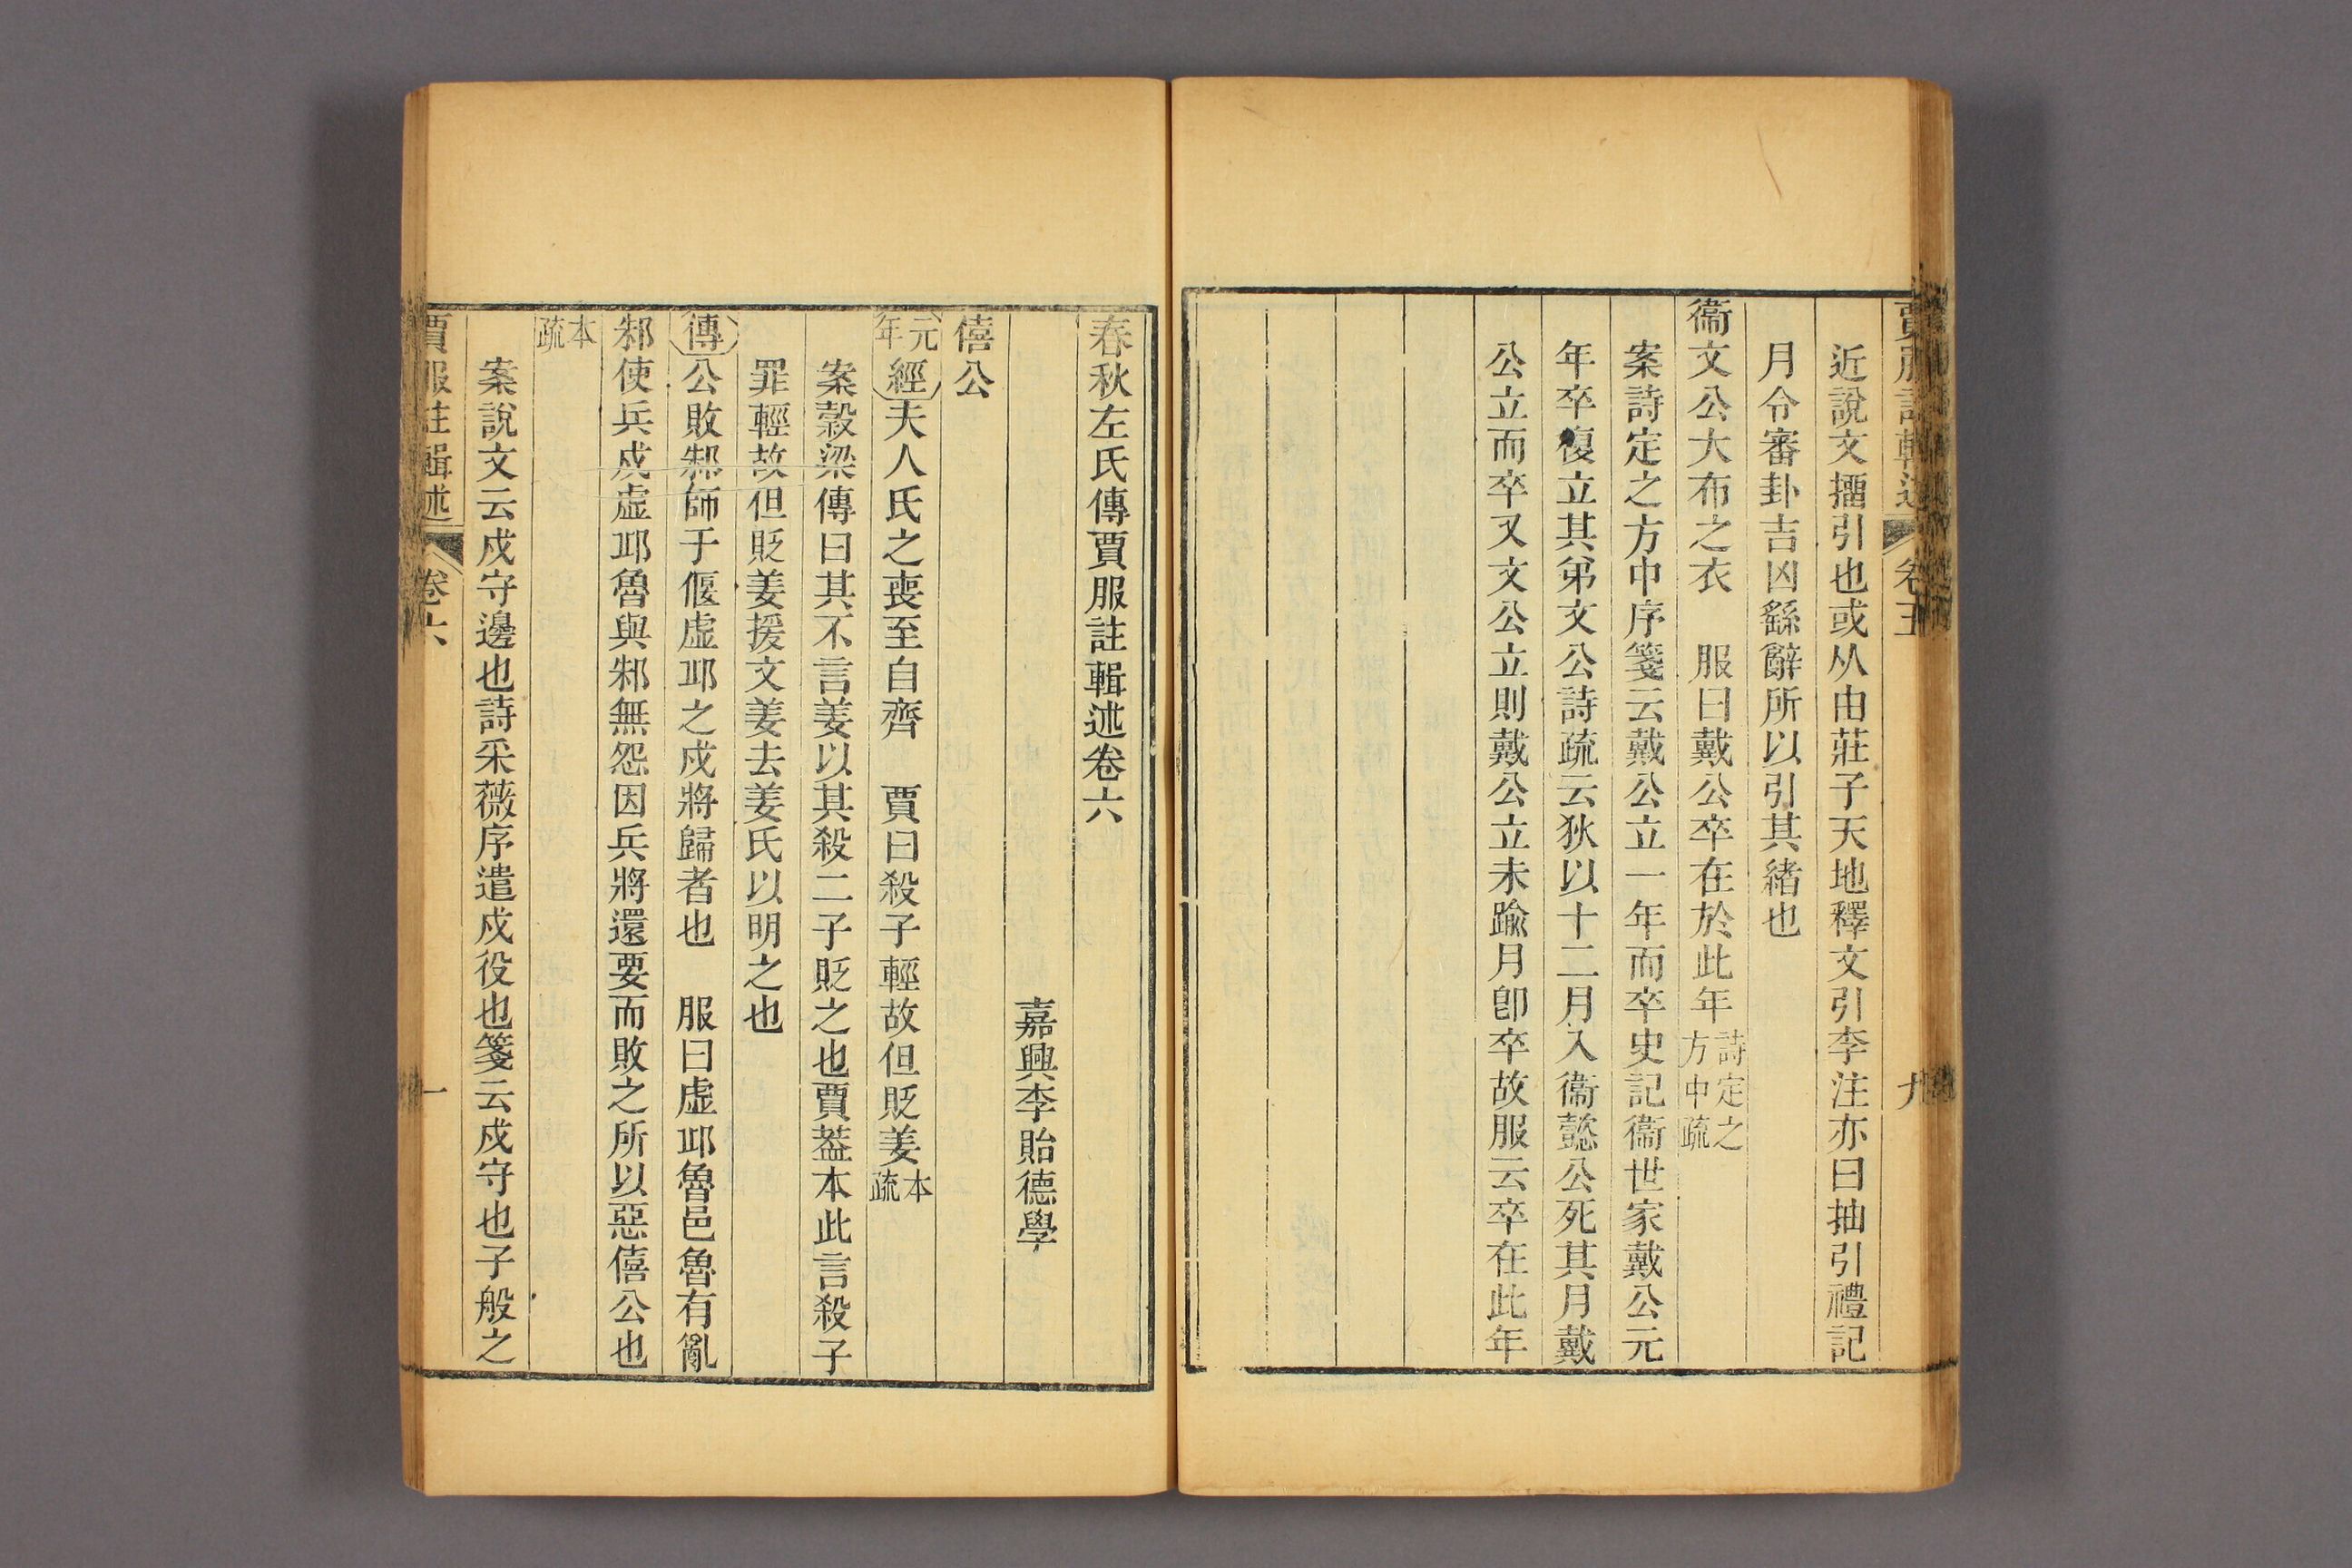 賈服註輯述 卷五 九
近說文㩅引也或从由莊子天地釋文引李注亦曰抽引禮記
月令審卦吉凶繇辭所以引其緒也
衞文公大布之衣　服曰戴公卒在於此年詩定之方中疏
案詩定之方中序箋云戴公立一年而卒史記衞世家戴公元
年卒復立其弟文公詩疏云狄以十二月入衞懿公死其月戴
公立而卒又文公立則戴公立未踰月卽卒故服云卒在此年
春秋左氏傳賈服註輯述卷六
嘉興李貽德學
僖公
元年經夫人氏之喪至自齊　賈曰殺子輕故但貶姜本疏
案穀梁傳曰其不言姜以其殺二子貶之也賈葢本此言殺子
罪輕故但貶姜援文姜去姜氏以明之也
傳公敗邾師于偃虛邱之戍將歸者也　服曰虛邱魯邑魯有亂
邾使兵戍虛邱魯與邾無怨因兵將還要而敗之所以惡僖公也
本疏
案說文云戍守邊也詩采薇序遣戍役也箋云戍守也子般之
賈服註輯述 卷六 一